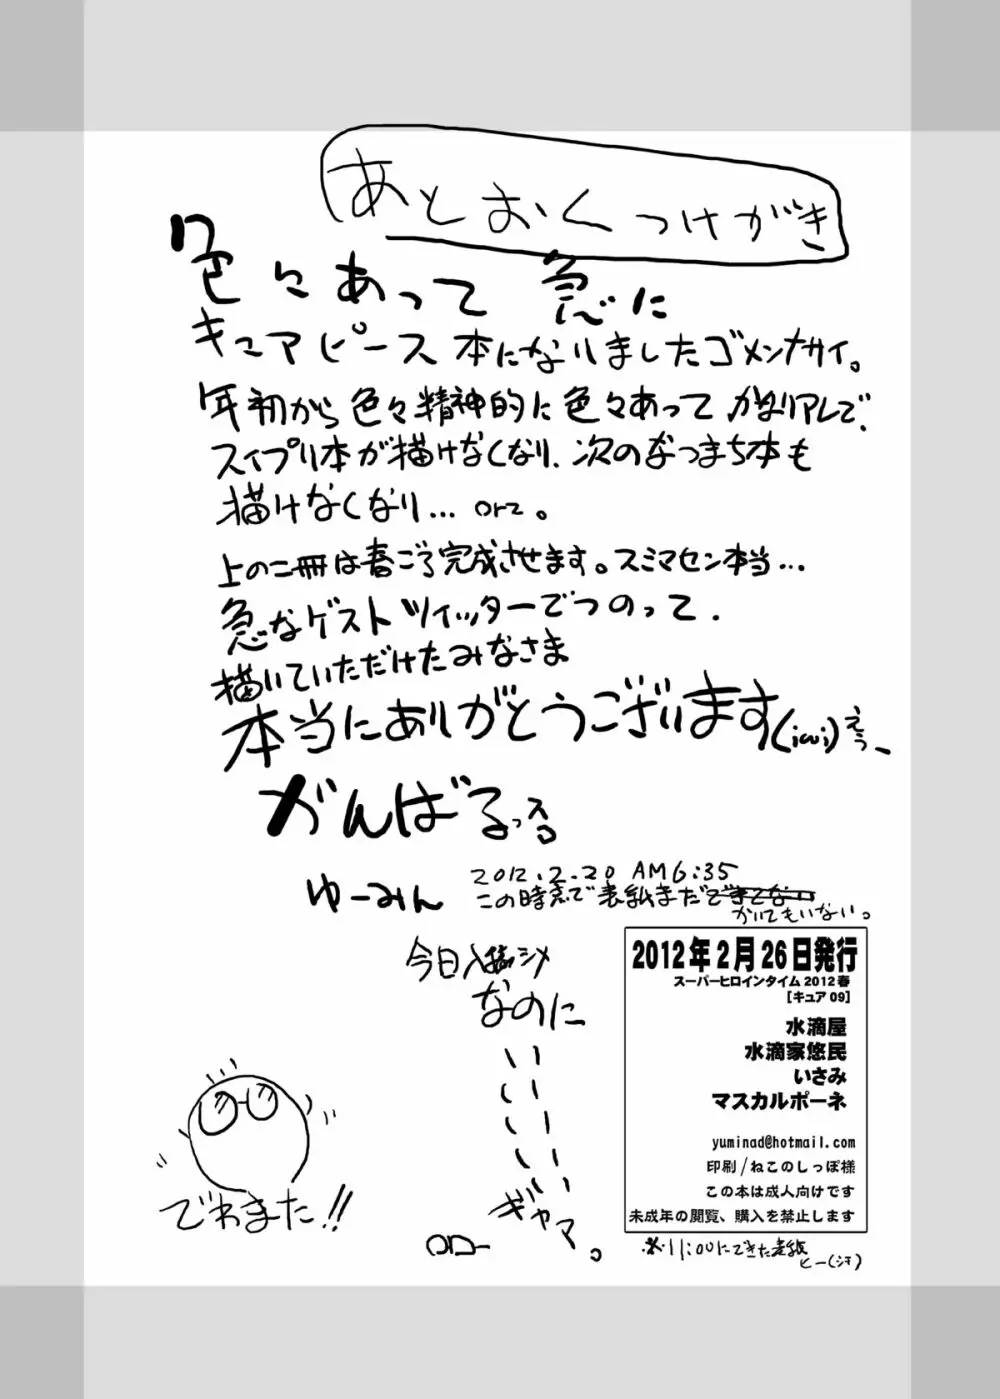 あとおくつけがき
色々あって 急に
キュアピース 本になりましたゴメンナサイ。
年初から色々精神的に色々あって かなりアレで、
スイプリ本が描けなくなり、次のなつまち本も
描けなくなり… orz。
上の二冊は春ごろ完成させます。スミマセン本当…
急なゲスト ツイッターでつのって、
描いていただけたみなさま
本当にありがとうございます(;ω;)えう、
がんばるっス
ゆーみん
2012.2.20 AM6:35
この時点で表紙まだできてない
かいてもいない。
今日入稿シメ
なのに
、、、、、、
、、、、、、
ギャア。
OD-
でわまた!!
2012年2月26日発行
スーパーヒロインタイム2012春
[キュア09]
水滴屋
水滴家悠民
いさみ
マスカルポーネ
yuminad@hotmail.com
印刷/ねこのしっぽ様
この本は成人向けです
未成年の閲覧、購入を禁止します
※11:00にできた表紙